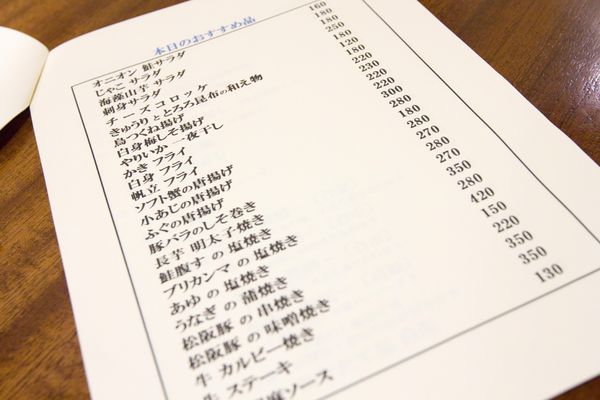 本日のおすすめ品
オニオン 鮭サラダ
じゃこ サラダ
海藻山芋 サラダ
刺身サラダ
チーズコロッケ
きゅうり ととろろ昆布の和え物
鳥つくね揚げ
白身梅しそ揚げ
やりいか 一夜干し
かき フライ
白身 フライ
帆立 フライ
ソフト蟹の唐揚げ
小あじの唐揚げ
ふぐの唐揚げ
豚バラのしそ巻き
長芋 明太子焼き
鮭腹す の 塩焼き
ブリカンマ の 塩焼き
あゆ の 塩焼き
うなぎ の 蒲焼き
松阪豚 の 串焼き
松阪豚 の 味噌焼き
牛 カルビー焼き
牛 ステーキ
麻ソース
160
180
250
180
120
180
220
230
220
220
300
180
280
270
280
270
350
280
420
150
220
350
350
130